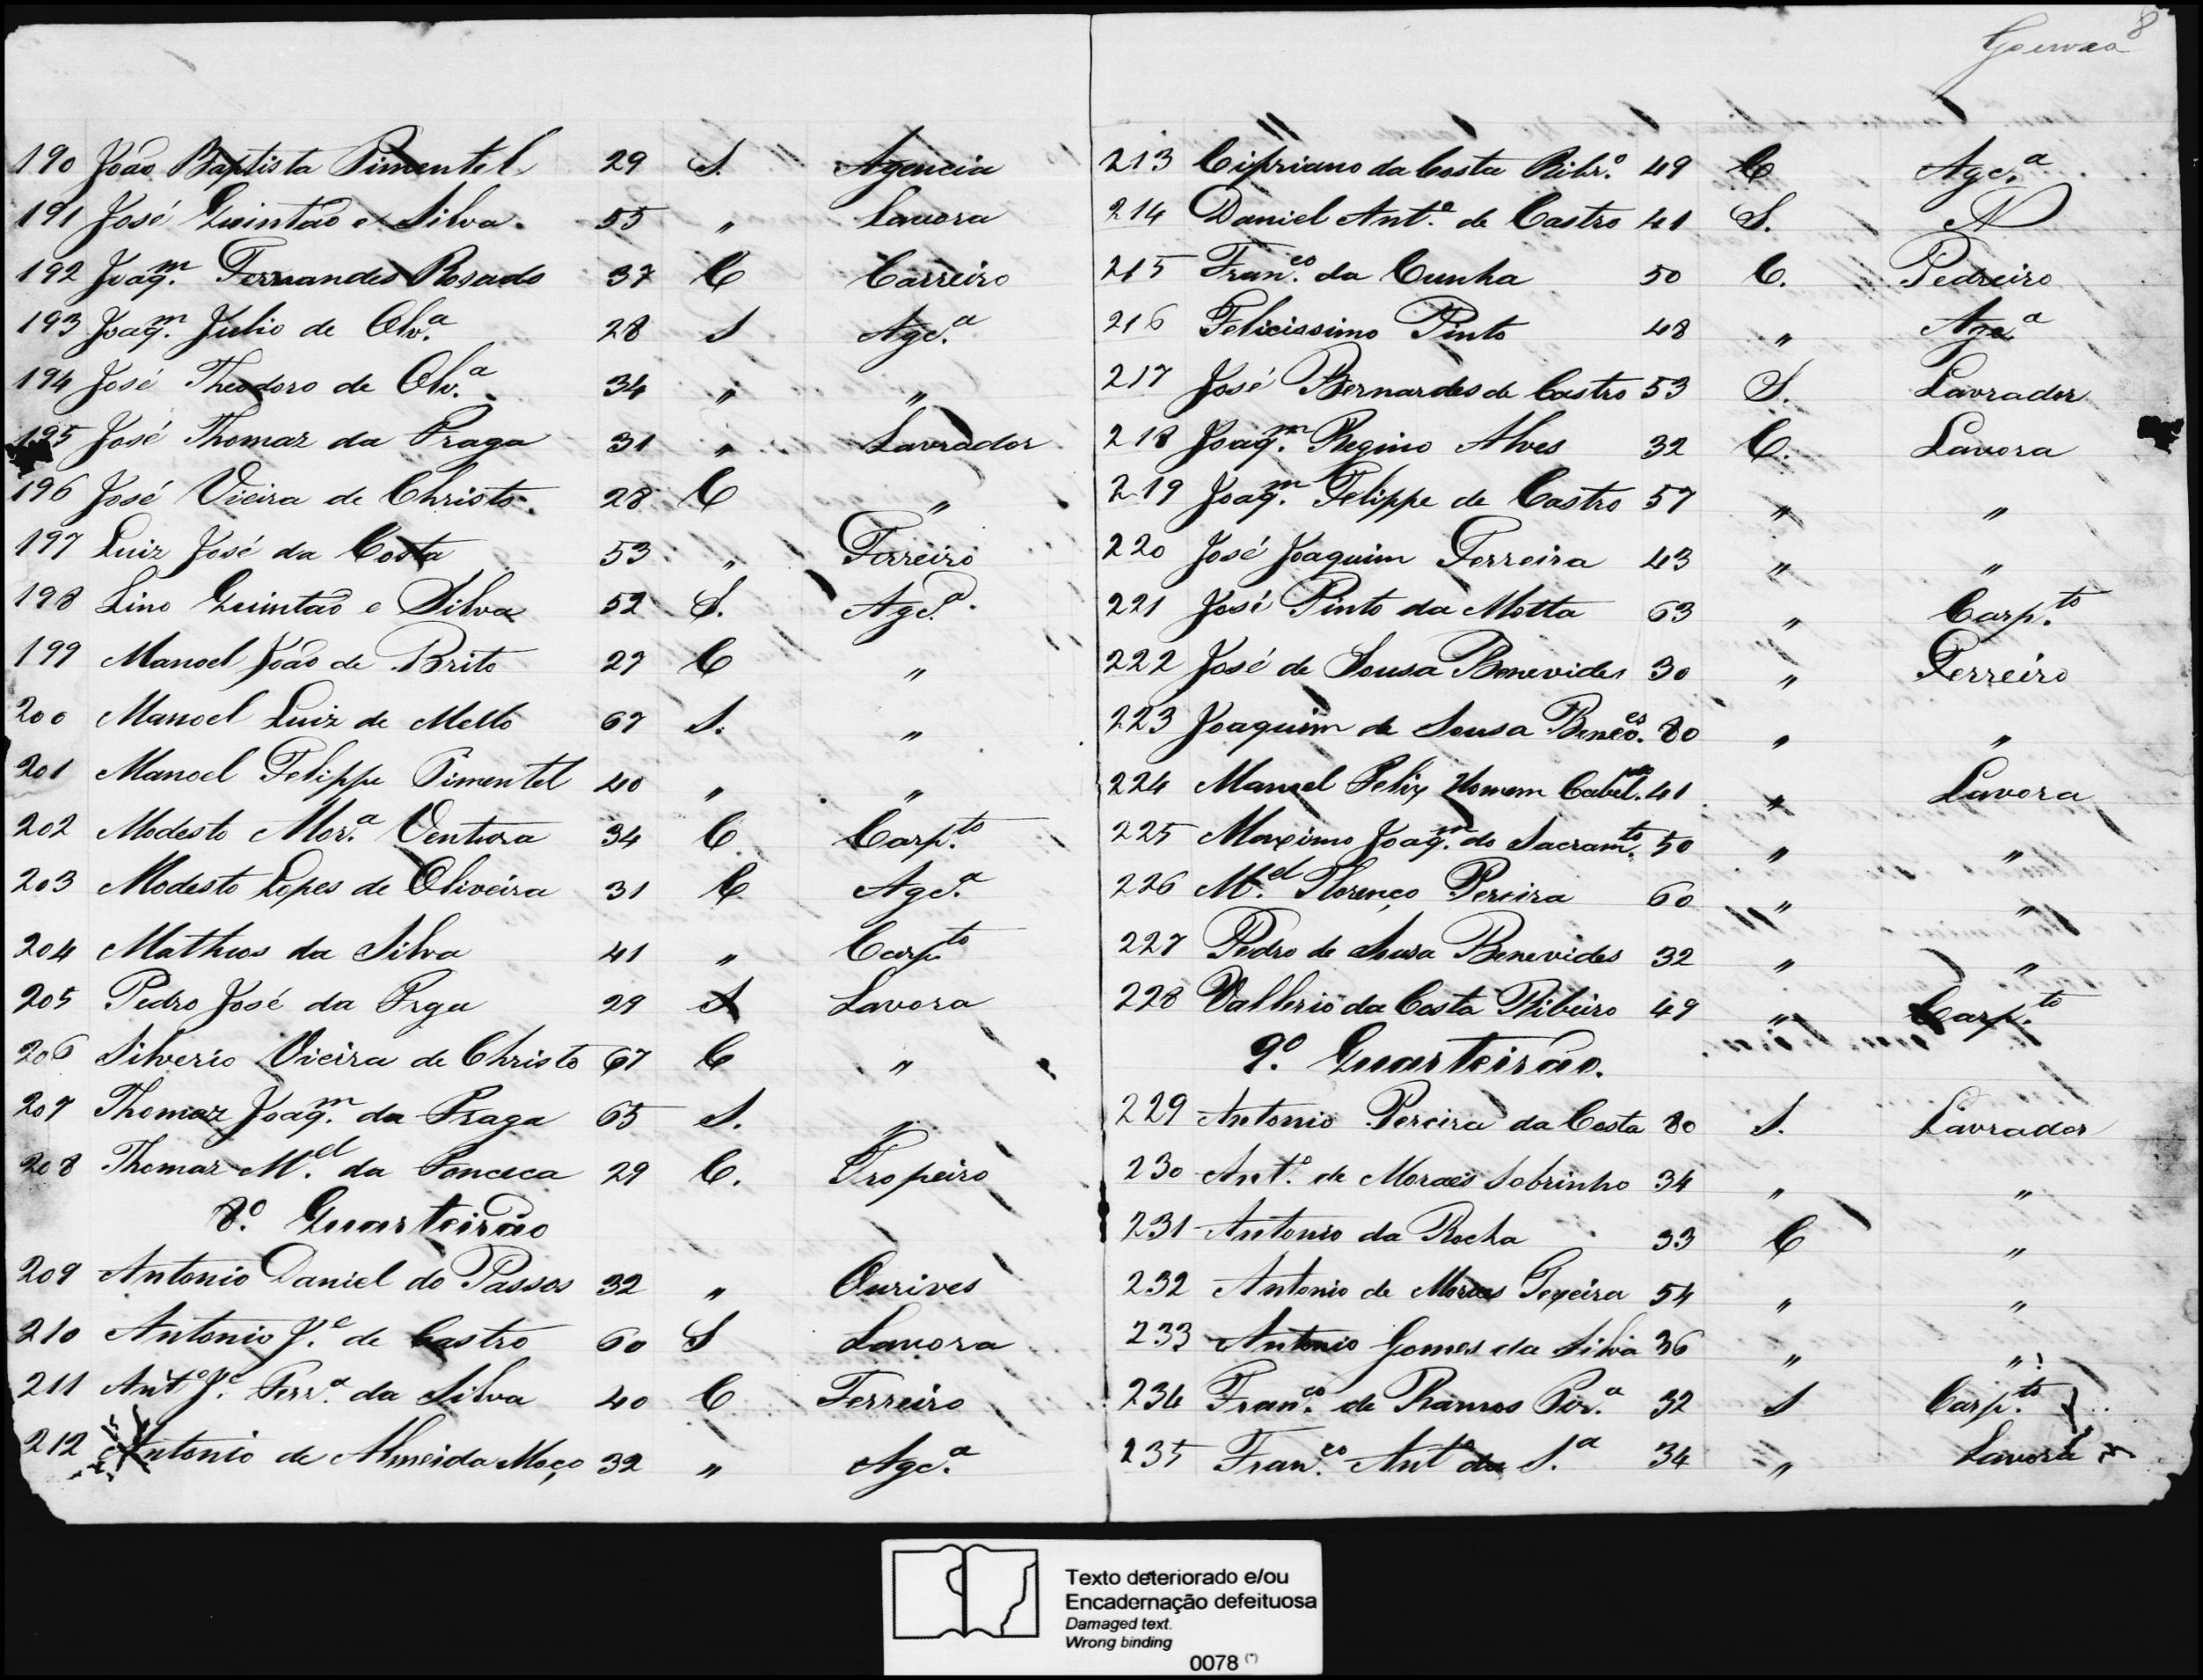 190 João Baptista Pimentel 29 S. Agencia
191 José Quintão e Silva. 55 " Lavora
192 Joaqm. Fernandes Rosado 37 C Carreiro
193 Joaqm. Julio de Olva. 28 S Agca.
194 José Theodoro de Olva. 34 " "
195 José Thomaz da Fraga 31 " Lavrador
196 José Vieira de Christo. 28 C "
197 Luiz José da Costa 53 " Ferreiro
198 Lino Quintão e Silva 52 S. Agca.
199 Manoel João de Brito 27 C "
200 Manoel Luiz de Mello 67 S. "
201 Manoel Felippe Pimentel 40 " "
202 Modesto Mora. Ventura 34 C Carpto.
203 Modesto Lopes de Oliveira 31 C Agca.
204 Matheos da Silva 41 " Carpto
205 Pedro José da Frga 29 S Lavora
206 Silverio Vieira de Christo 67 C "
207 Thomaz Joaqm. da Fraga 65 S. "
208 Thomaz Mel. da Fonceca 29 C. Tropeiro
8º. Quarteirão
209 Antonio Daniel do Passos 32 " Ourives
210 Antonio Je. de Castro 60 S Lavora
211 Anto Je. Ferra. da Silva 40 C Ferreiro
212 Antonio de Almeida Moço 32 " Agca.
8
213 Cipriano da Costa Ribro. 49 C Agca.
214 Daniel Anto. de Castro 41 S. N
215 Franco. da Cunha 50 C. Pedreiro
216 Felicissimo Pinto 48 " Agca
217 José Bernardes de Castro 53 S. Lavrador
218 Joaqm. Regino Alves 32 C. Lavora
219 Joaqm. Felippe de Castro 57 " "
220 José Joaquim Ferreira 43 " "
221 José Pinto da Motta 63 " Carpto.
222 José de Sousa Benevides 30 " Ferreiro
223 Joaquim de Sousa 80 " "
224 Manoel Felix Homem 41 " Lavora
225 Maximo Joaqm. do Sacramto. 50 " "
226 Mel. Florenço Pereira 60 " "
227 Pedro de Sousa Benevides 32 " "
228 Vallerio da Costa Ribeiro 49 " Carpto.
9º. Quarteirão.
229 Antonio Pereira da Costa 80 S. Lavrador
230 Anto. de Moraes Sobrinho 34 " "
231 Antonio da Rocha 33 C "
232 Antonio de Moraes Texeira 54 " "
233 Antonio Gomes da Silva 36 " "
234 Franco. de Ramos Pira. 32 S Carpto.
235 Franco. Anto da Sa. 34 " Lavora
Texto deteriorado e/ou
Encadernação defeituosa
Damaged text.
Wrong binding
0078 (*)